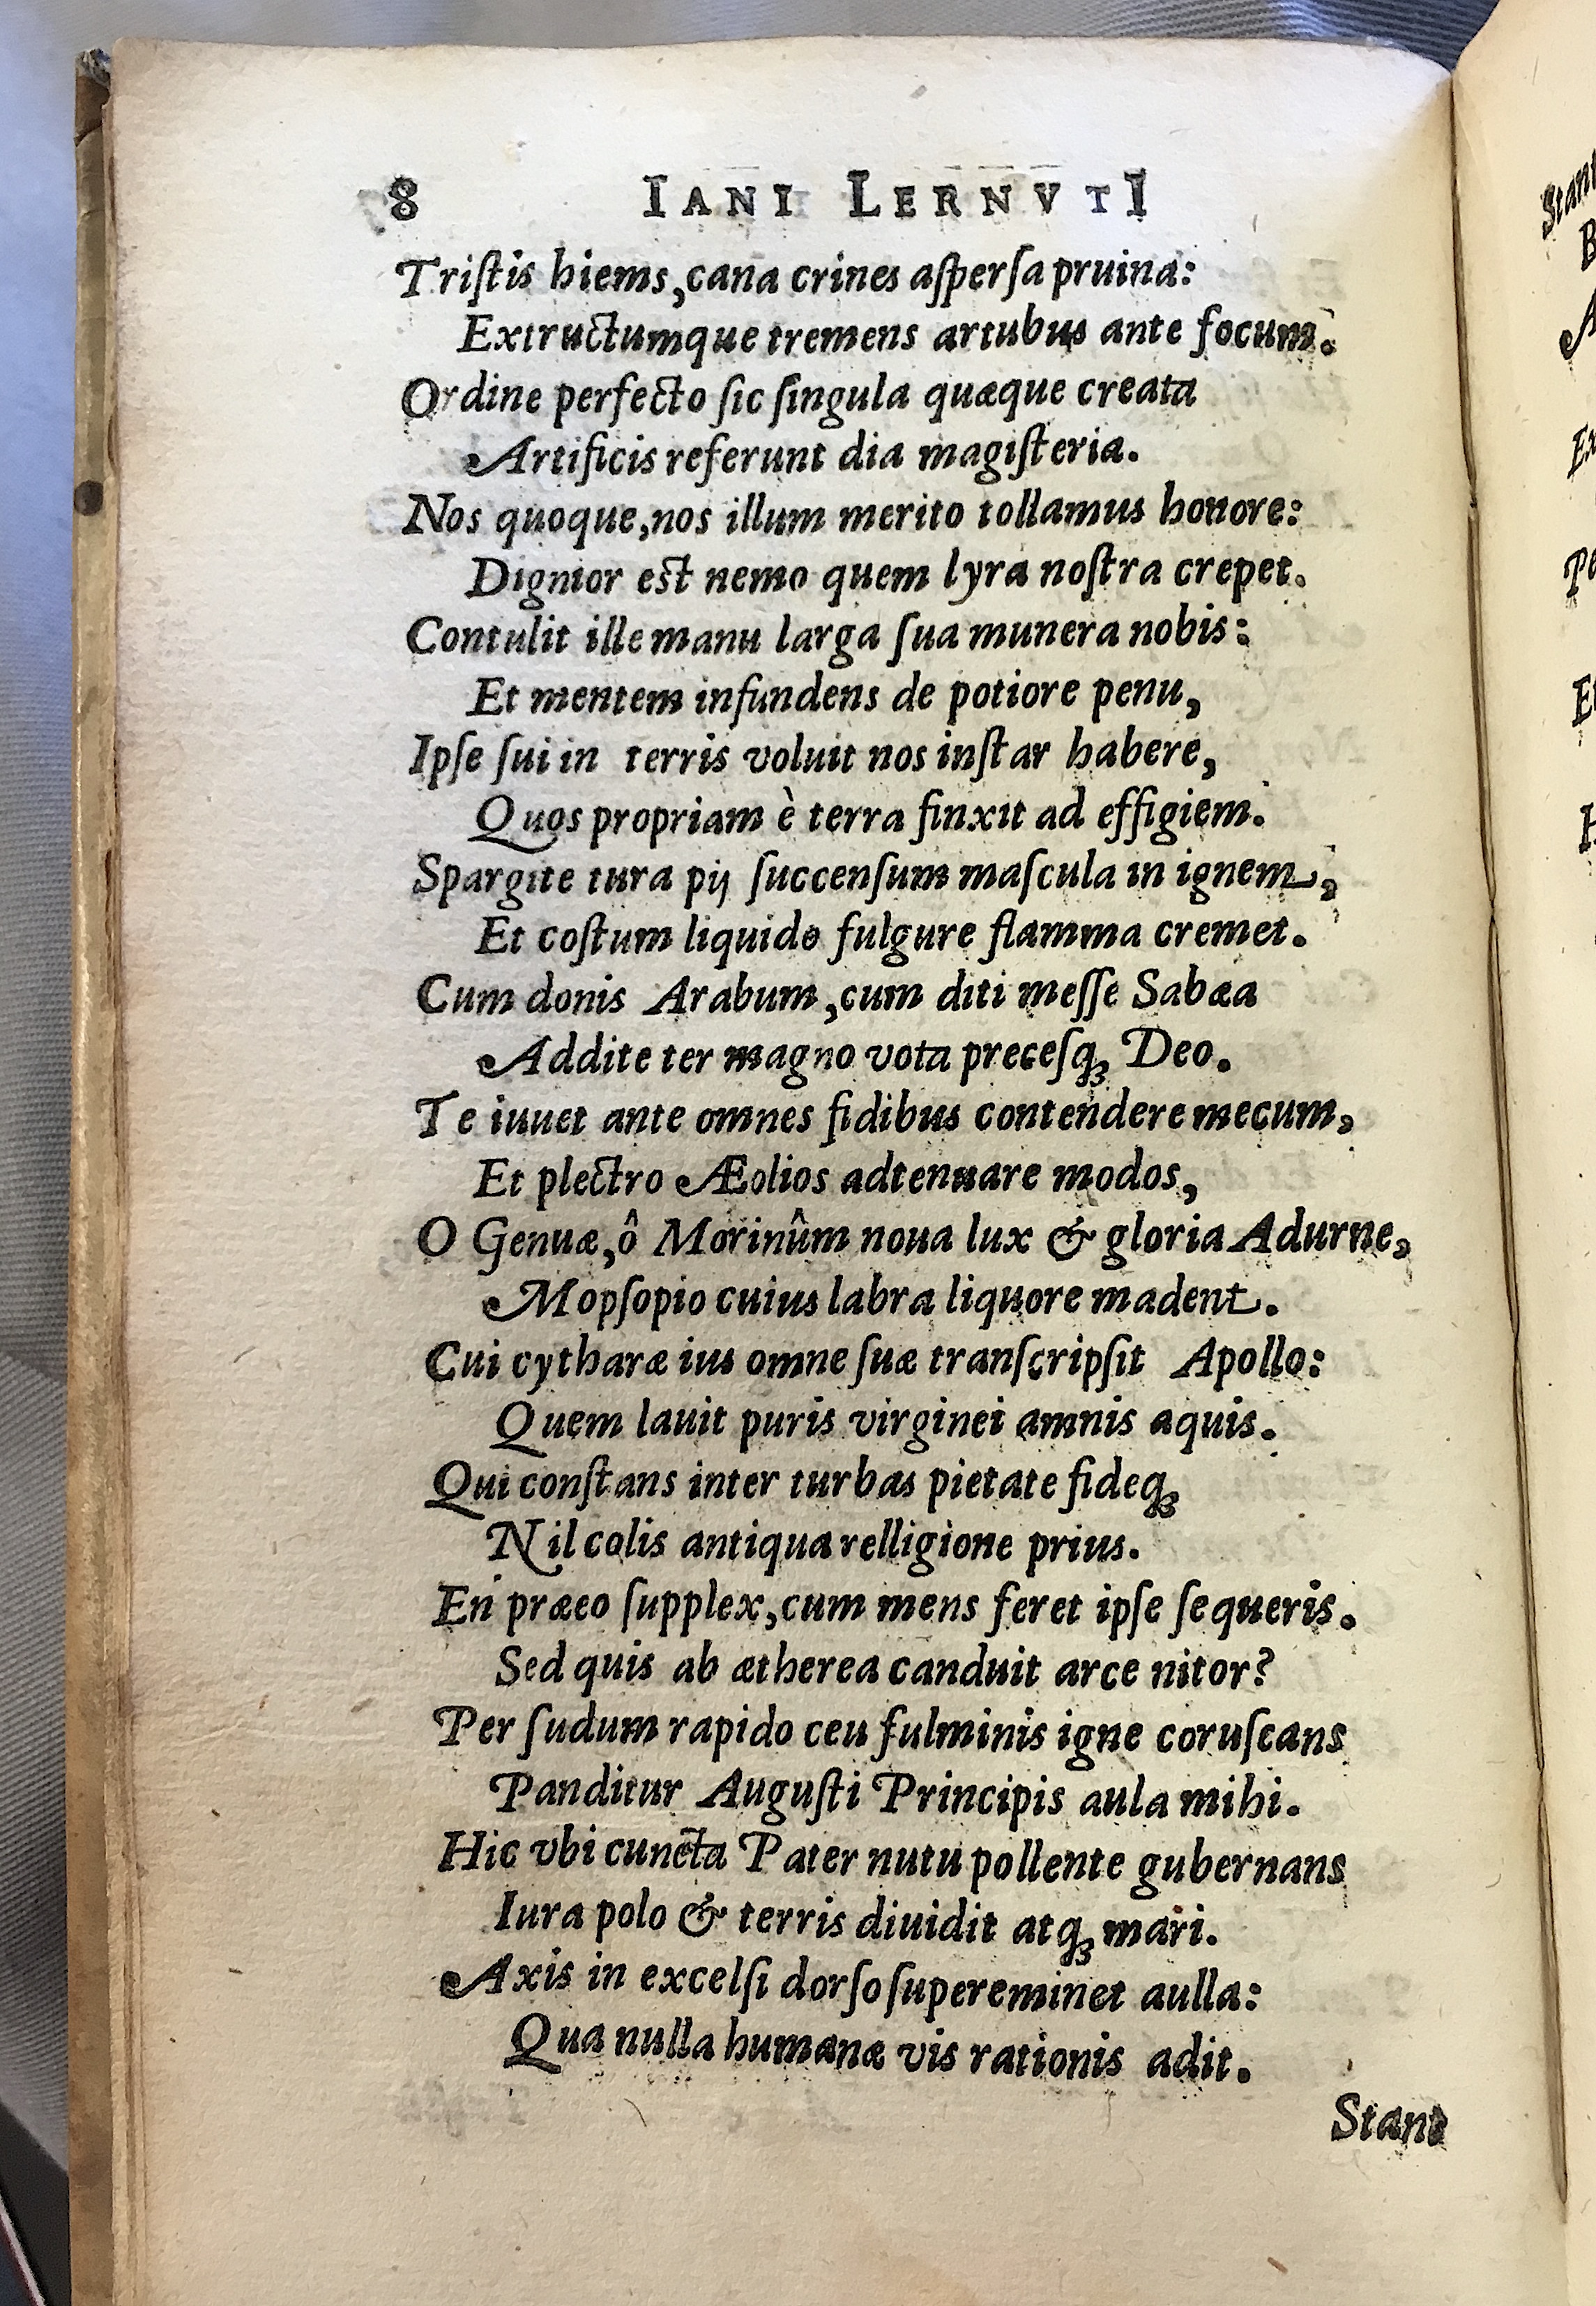 8 IANI LERNVTI
Triſtis hiems, cana crines aſperſa pruina:
Extructumque tremens artubus ante focum.
Ordine perfecto ſic ſingula quæque creata
Artificis referunt dia magiſteria.
Nos quoque, nos illum merito tollamus honore:
Dignior eſt nemo quem lyra noſtra crepet.
Contulit ille manu larga ſua munera nobis:
Et mentem infundens de potiore penu,
Ipſe ſui in terris voluit nos inſtar habere,
Quos propriam è terra finxit ad effigiem.
Spargite tura pij ſuccenſum maſcula in ignem,
Et coſtum liquido fulgure flamma cremet.
Cum donis Arabum, cum diti meſſe Sabæa
Addite ter magno vota preceſq́ꝫ Deo.
Te iuuet ante omnes fidibus contendere mecum,
Et plectro Æolios adtenuare modos,
O Genuæ, ô Morinûm noua lux & gloria Adurne,
Mopſopio cuius labra liquore madent.
Cui cytharæ ius omne ſuæ tranſcripſit Apollo:
Quem lauit puris virginei amnis aquis.
Qui conſtans inter turbas pietate fideqꝫ
Nil colis antiqua relligione prius.
En præeo ſupplex, cum mens feret ipſe ſequeris.
Sed quis ab ætherea canduit arce nitor?
Per ſudum rapido ceu fulminis igne coruſcans
Panditur Auguſti Principis aula mihi.
Hic vbi cuncta Pater nutu pollente gubernans
Iura polo & terris diuidit atqꝫ mari.
Axis in excelſi dorſo ſupereminet aulla:
Qua nulla humanæ vis rationis adit.
Stant